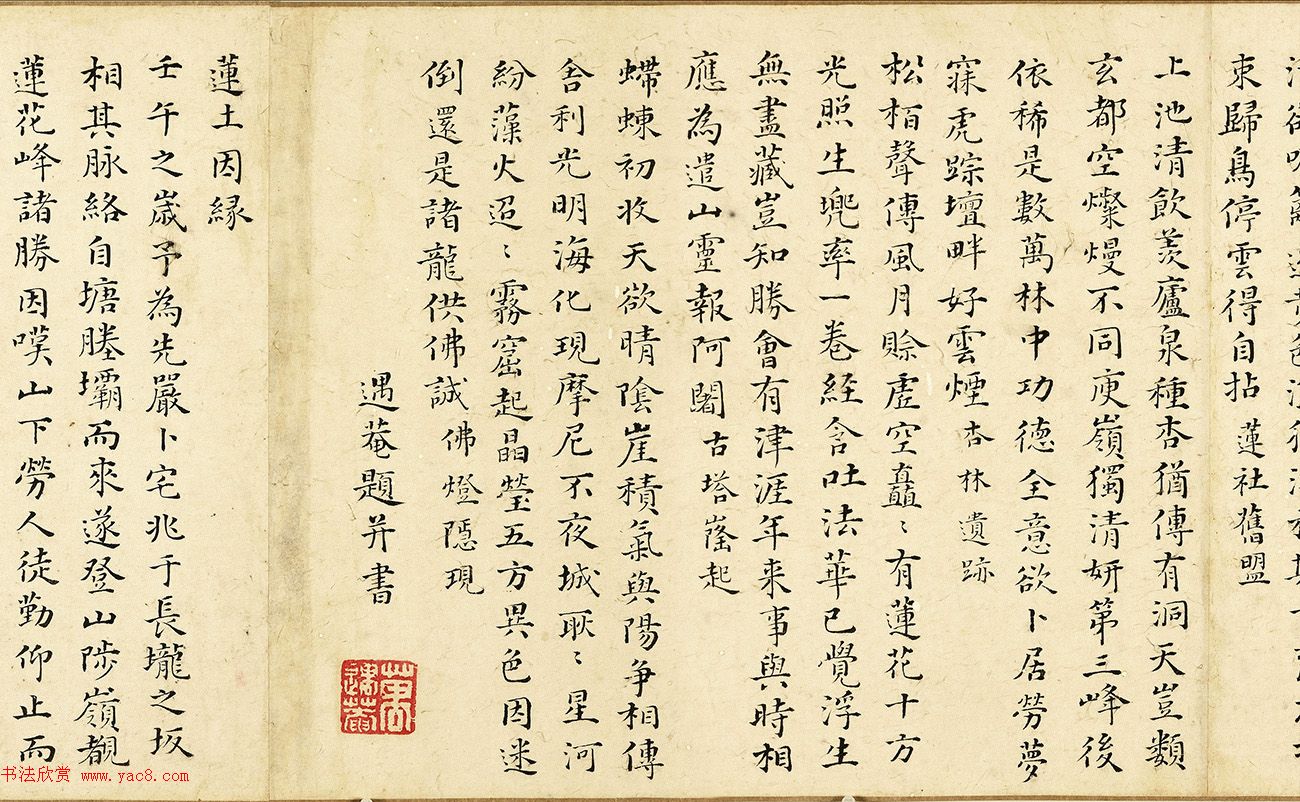 東歸鳥停雲得自拈 蓮社舊盟
上池清飲羨廬泉種杏猶傳有洞天豈類
玄都空燦熳不同庾嶺獨清妍第三峰後
依稀是數萬林中功德全意欲卜居勞夢
寐虎踪壇畔好雲煙 杏林遺跡
松栢聲傳風月賒虛空矗〻有蓮花十方
光照生兜率一卷經含吐法華已覺浮生
無盡藏豈知勝會有津涯年来事與時相
應為遣山靈報阿闍 古塔窿起
螮蝀初收天欲晴陰崖積氣與陽争相傳
舍利光明海化現摩尼不夜城耿〻星河
紛藻火迢〻霧窟起晶瑩五方異色因迷
倒還是諸龍供佛誠 佛燈隱現
遇菴題并書
蓮土因緣
壬午之嵗予為先嚴卜宅兆于長壠之坂
相其脉絡自塘塍壩而來遂登山陟嶺覩
蓮花峰諸勝因嘆山下勞人徒勤仰止而
书法欣赏 www.yac8.com